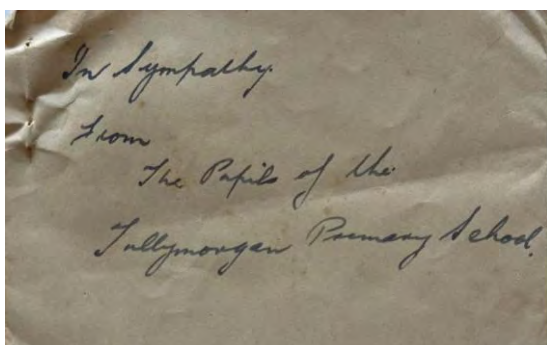 In Sympathy.
From
The Pupils of the
Tullymorgan Primary School.